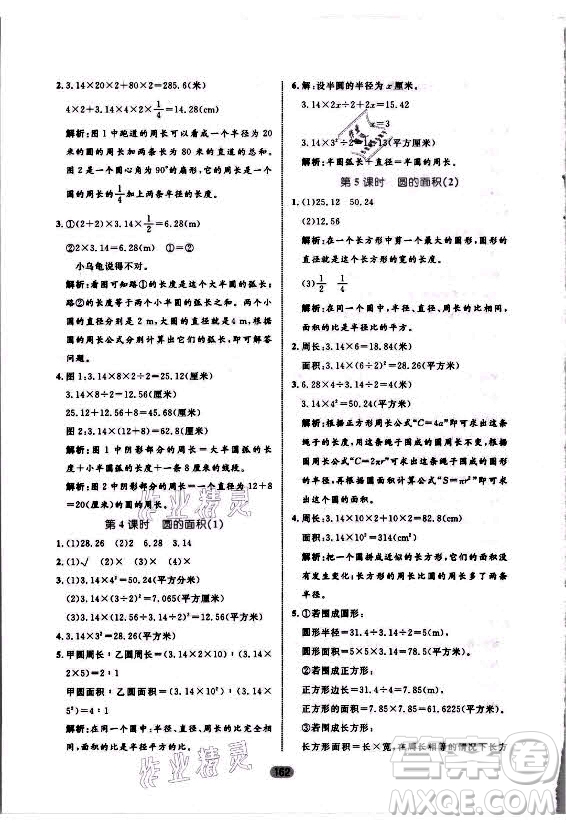 2. 3.14×20×2+80×2=285.6(米)
4×2+3.14×4×2×1/4=14.28(cm)
解析:图1中跑道的周长可以看成一个半径为20
米的圆的周长加两条长为80米的直道的总和。
图2是一个圆心角为90°的扇形,它的周长是圆
周长的1/4加上两条半径的长度。
3. ①(2+2)×3.14×1/2=6.28(m)
②2×3.14=6.28(m) ①=②
小乌龟说得不对。
解析:图中的路①的长度是大半圆的弧长;
路②的长度是两个小半圆的弧长的和,小
圆的直径分别是2 m,大圆的直径是4 m,根据圆
的周长公式分别计算出它们的弧长即可解答
问题。
4. 图1:3.14×8×2÷2=25.12(厘米)
3.14×8÷2=12.56(厘米)
25.12+12.56+8=45.68(厘米)
图2:3.14×(12+8)=62.8(厘米)
解析:图1中阴影部分的周长=大半圆弧的长
度+小半圆弧的长度+一条8厘米的线段。
图2中阴影部分的周长等于一个直径为12+8=
20(厘米)的圆的周长。
第4课时 圆的面积(1)
1. (1)28.26 (2)2 6.28 3.14
2. (1)√ (2)× (3)× (4)×
3. (1)3.14×2²=12.56(平方分米)
(2)3.14×(3÷2)²=7.065(平方厘米)
(3)3.14×(12.56÷3.14÷2)²=12.56(平方米)
4. 3.14×3²=28.26(平方米)
5. 甲圆周长∶乙圆周长=(3.14×2×2)∶(3.14×
2)=2∶1
甲圆面积∶乙圆面积=(3.14×2²)∶(3.14×
1²)=4∶1
解析:在同一个圆中:半径、直径、周长的比完全
相同,面积的比是半径的平方的比。
6. 解:设半圆的半径为x厘米。
3.14×2x÷2+2x=15.42
x=3
3.14×3²÷2=14.13(平方厘米)
解析:半圆弧长+直径=半圆周长。
第5课时 圆的面积(2)
1. (1)25.12 50.24
(2)12.56
解析:在一个长方形中剪一个最大的圆形,圆形
的直径等于长方形的宽的长度。
(3)1/2 1/4
解析:在同一个圆中,半径、直径、周长的比相同,
面积的比是半径比的平方。
2. 周长:3.14×6=18.84(米)
面积:3.14×(6÷2)²=28.26(平方米)
3. 6.28×4÷3.14÷2=4(米)
3.14×4²=50.24(平方米)
解析:根据正方形周长公式“C=4a”求出这条
绳子的长度,也就是这条绳子围成的圆的周长,根据
圆的周长公式“C=2πr”可求出这条绳子围成的
圆的半径,再根据圆的面积公式“S=πr²”求出这
条绳子围成的圆的面积。
4. 周长:3.14×12÷2×2=
面积:3.14×(12÷2)²=
解析:把一个圆拼成近似的长方形,长方形的
周长等于这个圆的周长加上这个圆的两条
半径。
5. ①若围成圆形:
圆形半径为:31.4÷3.14÷2=5(米)
圆形面积为:5×5×3.14=78.5(平方米)
②若围成正方形:
正方形边长为:31.4÷4=7.85(米)
正方形的面积为:7.85×7.85=61.6225(平方米)
③若围成长方形:
长方形面积=长×宽,在周长相等的情况下长方
162
作业精灵
作业精灵
答案圈
MXQE.COM